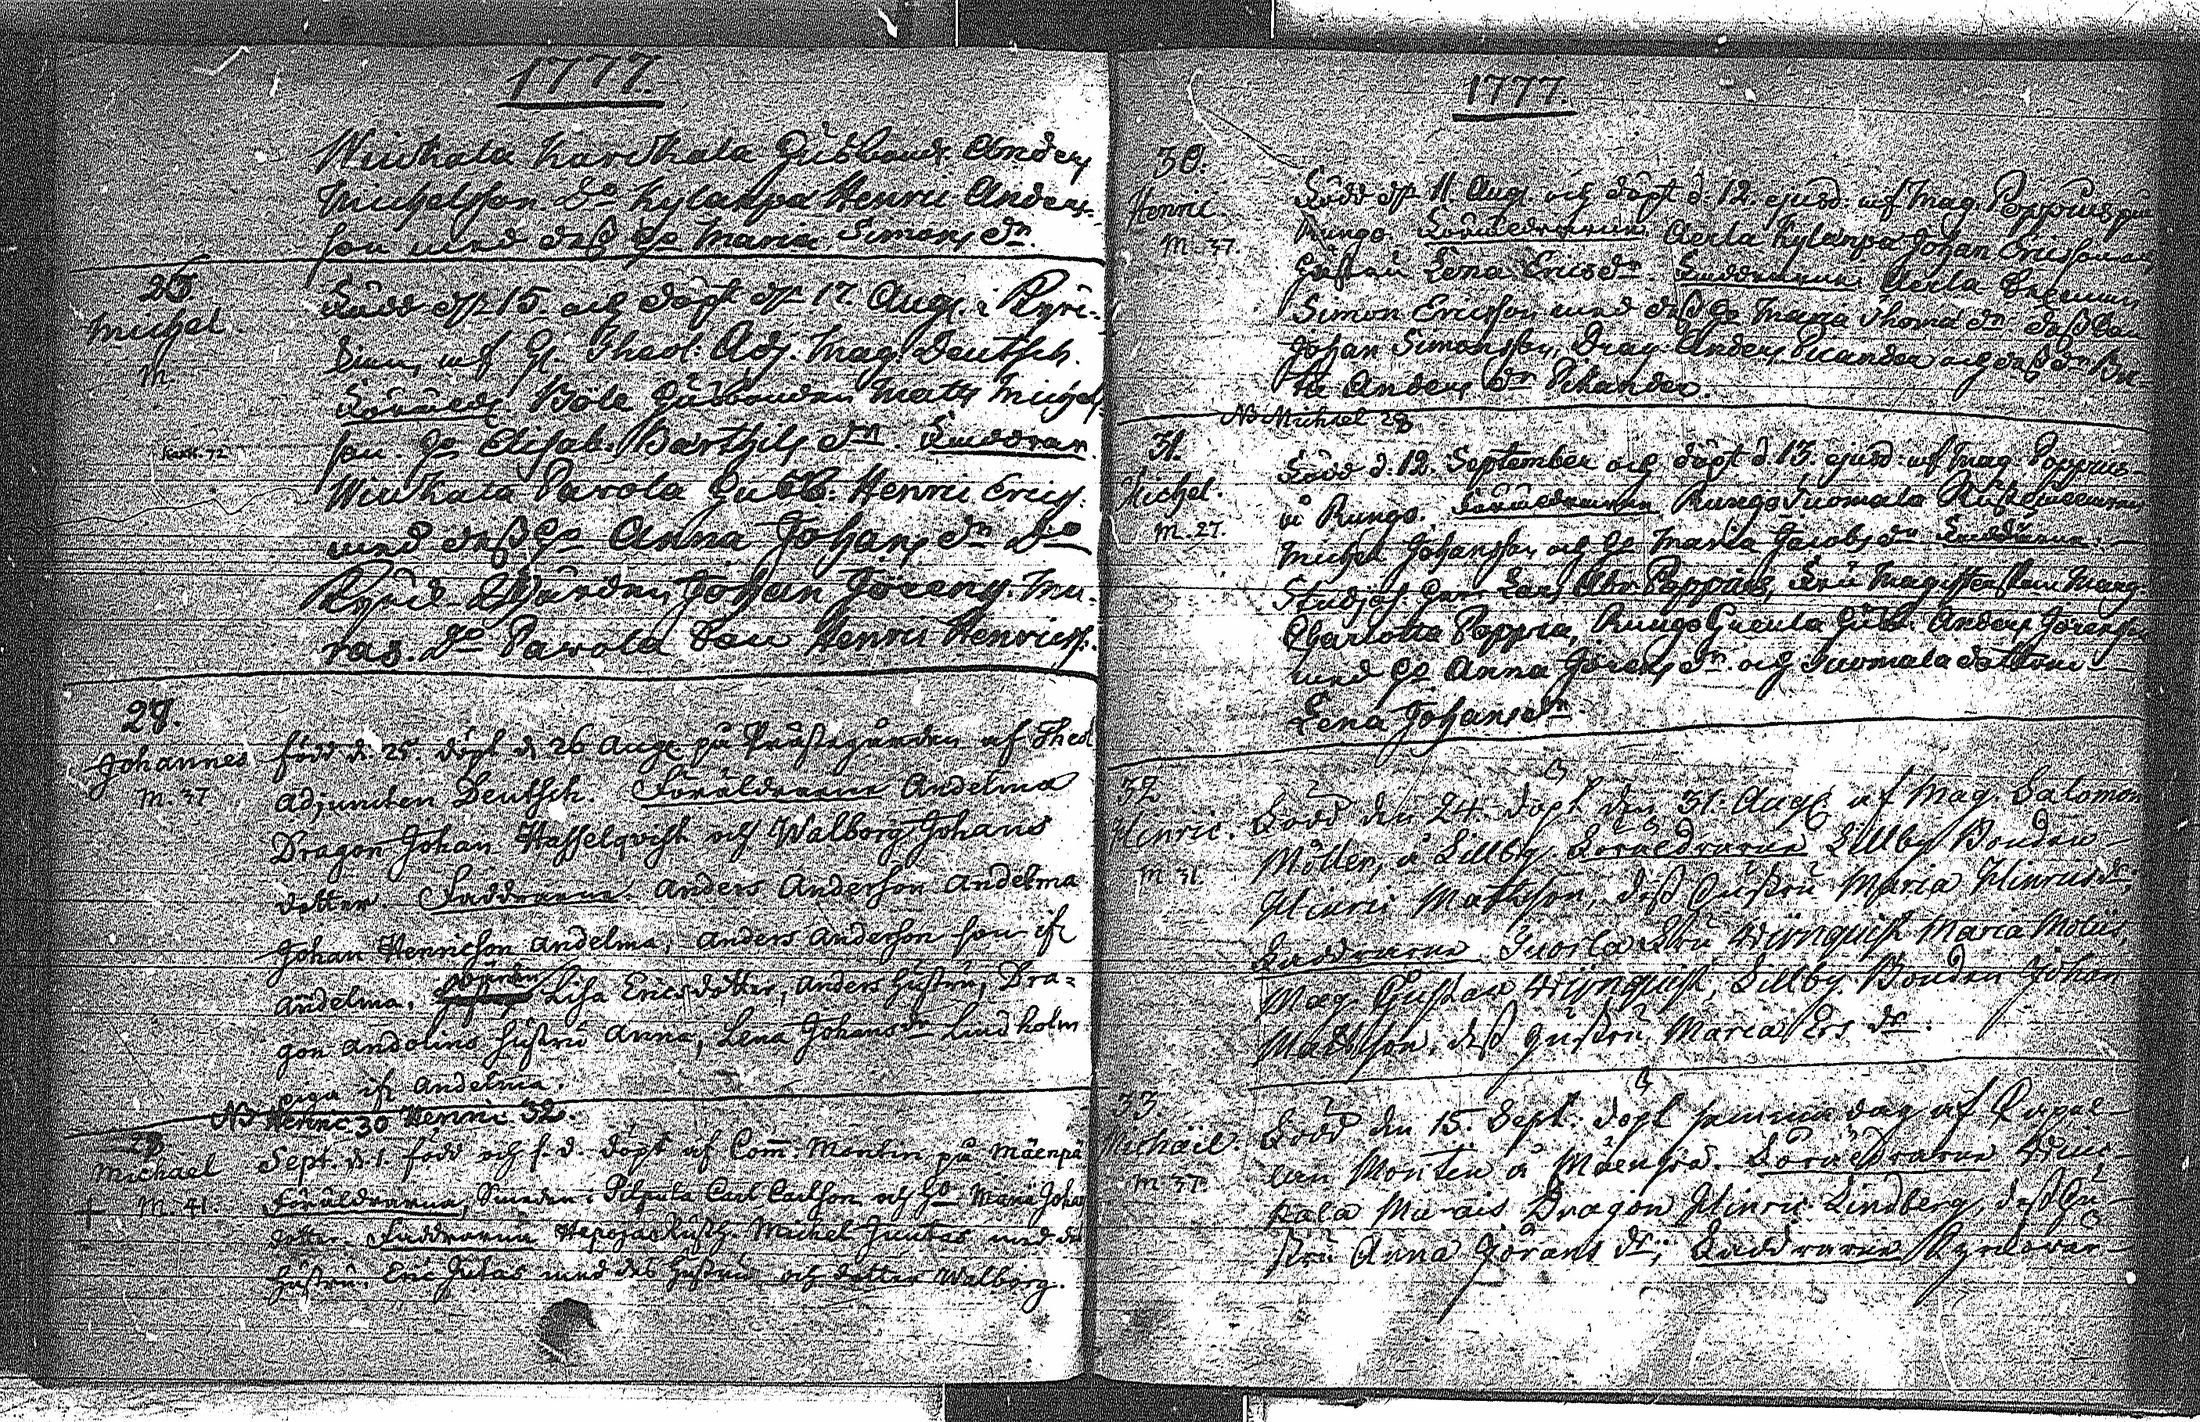 1777.
Wiukala Karikala Husbond Anders
Michelsson Do Kylänpä Henric Anders-
son med dess Ho Maria Simons dr.
26.
Michel.
M
född d. 15. och döpt d. 17. Aug. i Kyrc-
kian, af H. Theol. Adj. Mag. Deutsch.
Föräldr. Böle Husbonden Matts Michels
son. Ho Elisab. Barthils dr. Faddrar
Wiukala Parola Husb. Henric Erics.
med dess Ho Anna Johans dr Do
Kyrck Wärden Johan Görens. Mu-
ras. Do Parola Son Henric Henricss.
27.
Johannes
M. 37
född d. 25. döpt d. 26 Aug. på Prästegården af Theol
adjuncten Deutsch. Föräldrarne Andelma
Dragon Johan Hasselqvist och Walborg Johans
dotter. Faddrarne. Anders Anderson Andelma
Johan Henricson Andelma, Anders Anderson son ifr
Andelma, Lisa Ericsdotter, Anders Hustru, Dra=
gon Andolins Hustru Anna, Lena Johansdr Lindholm
piga ifr Andelma.
NB Henric 30 Henric. 32.
28
Michael
M. 41.
Sept. d. 1. född och s. d. döpt af Com. Montin på Mäenpä
Föräldrarna, Carl Carlson och Ho Maria Johans
dotter. Faddrarna Hepojas Rusth. Michel Juutas med dess
Hustru. Eric Jutas med des Hustru och dotter Walborg.
1777.
30.
Henric
M. 37.
född d. 11. Aug. och döpt d. 12. ejusd. af Mag. Poppius på
Rungo. Föräldrarne Aerla Kylänpä Johan Ericsson och
Hustru Lena Ericsdr. Faddrarne Aerla
Simon Ericsson med dess Ho Maria Thomæ dr. dess Son
Johan Simonsson, Drag. Anders och dess dr Bri-
ta Anders dr
NB Michael 28
31.
Michel.
M. 27.
född d. 12. September och döpt d. 13. ejusd. af Mag. Poppius
å Rungo. Föräldrarne Rungo Tuomala Rusthållaren
Michel Johansson och Ho Maria Jacobs dr Faddrarne
Herr Lars Abr. Poppius, Fru Marg.
Charlotta Poppia, Rungo Husb. Anders Jörensson
med Ho Anna Jörens dr och Tuomala dottern
Lena Johansdr
32
Hinric.
M 31.
Född den 24. döpt den 31. Aug. af Mag. Salomon
Möller, å Lillby Föräldrarne Lillby Bonden
Hinric Mattsson, dess Hustru Maria Hinricsdr,
Faddrarne Fru Wijnquist Maria Molin,
Mag. Gustav Wijnquist, Lillby Bonden Johan
Mattsson, dess Hustru Maria Ers dr.
33
Michäel.
M 37
Född den 15. Sept. döpt samma dag af Capel-
lan Monten å Mäenpä. Föräldrarne
kala Murais Dragon Hinric Lindberg, dess Hu-
stru Anna Görans dr; Faddrarne Kyrckovar-